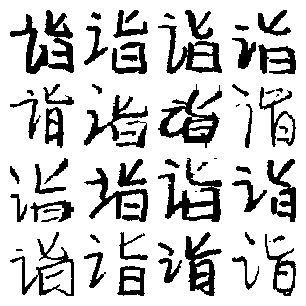 诣诣诣诣
诣诣诣诣
诣诣诣诣
诣诣诣诣